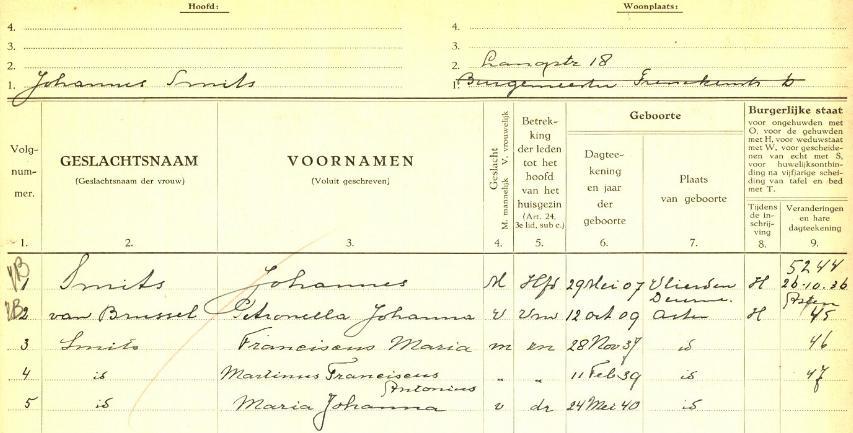 Hoofd: Woonplaats:
4. 4.
3. 3.
2. 2. Langstr 18
1. Johannes Smits 1. Burgemeester
Volg-
num-
mer.
GESLACHTSNAAM
(Geslachtsnaam der vrouw)
VOORNAMEN
(Voluit geschreven)
Geslacht
M. mannelijk V. vrouwelijk
Betrek-
king
der leden
tot het
hoofd
van het
huisgezin
(Art. 24,
3e lid, sub c.)
Geboorte
Dagtee-
kening
en jaar
der
geboorte
Plaats
van geboorte
Burgerlijke staat
voor ongehuwden met
O, voor de gehuwden
met H, voor weduwstaat
met W, voor gescheide-
nen van echt met S,
voor huwelijksontbin-
ding na vijfjarige schei-
ding van tafel en bed
met T.
Tijdens
de in-
schrij-
ving
Veranderingen
en hare
dagteekening
1. 2. 3. 4. 5. 6. 7. 8. 9.
5244
VB 1 Smits Johannes M Hfd 29 Mei 07 Vlierden H 26.10.36
Deurne.
VB 2 van Brussel Petronella Johanna V Vrw 12 oct 09 Asten H 45
3 Smits Franciscus Maria m zn 28 Nov 37 id 46
4 id Martinus Franciscus " " 11 Feb 39 id 47
Antonius
5 id Maria Johanna v dr 24 Mei 40 id